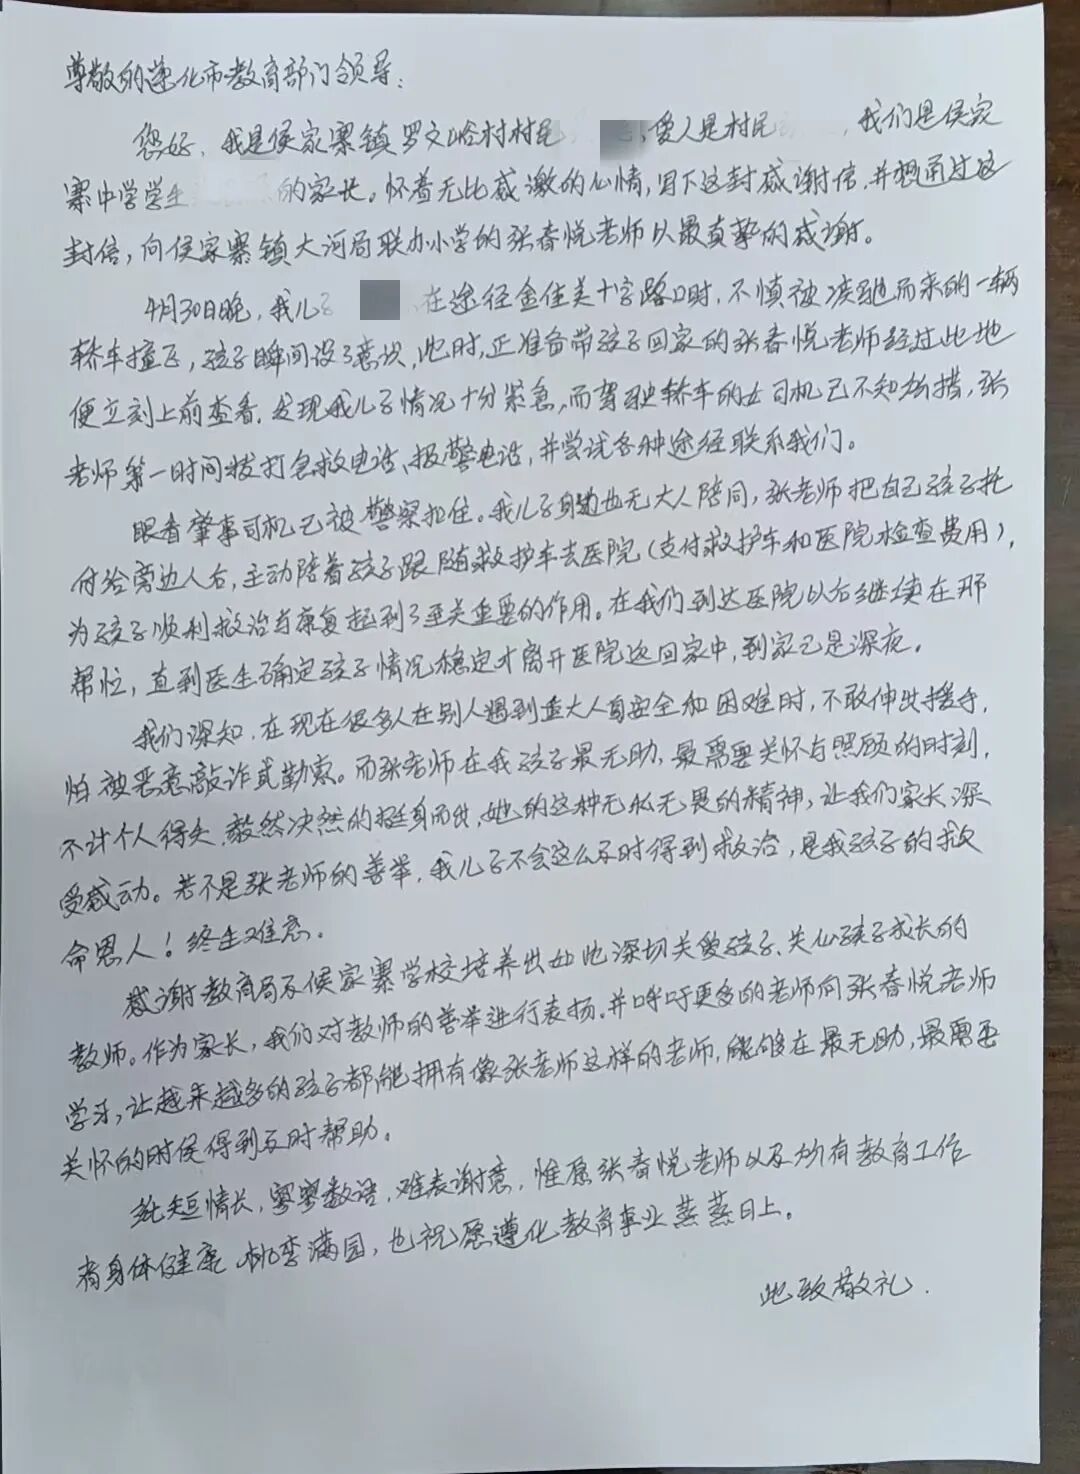 尊敬的遵化市教育部门领导:
您好,我是侯家寨镇罗文峪村村民 ,爱人是村民 ,我们是侯家
寨中学学生 的家长。怀着无比感激的心情,写下这封感谢信,并想通过这
封信,向侯家寨镇大河局联办小学的张春悦老师以最真挚的感谢。
4月30日晚,我儿子 在途径金佳美十字路口时,不慎被凌驰而来的一辆
轿车撞飞,孩子瞬间没了意识,此时,正准备带孩子回家的张春悦老师经过此地
便立刻上前查看,发现我儿子情况十分紧急,而驾驶轿车的女司机已不知所措,张
老师第一时间拨打急救电话、报警电话,并尝试各种途经联系我们。
眼看肇事司机已被警察扣住。我儿子身边也无大人陪同,张老师把自己孩子托
付给旁边人后,主动陪着孩子跟随救护车去医院(支付救护车和医院检查费用),
为孩子顺利救治与康复起到了至关重要的作用。在我们到达医院以后继续在那
帮忙,直到医生确定孩子情况稳定才离开医院返回家中,到家已是深夜。
我们深知,在现在很多人在别人遇到重大人身安全和困难时,不敢伸出援手,
怕被恶意敲诈或勒索。而张老师在我孩子最无助,最需要关怀与照顾的时刻,
不计个人得失,毅然决然的挺身而出,她的这种无私无畏的精神,让我们家长深
受感动。若不是张老师的善举,我儿子不会这么及时得到救治,是我孩子的救
命恩人!终生难忘。
感谢教育局及侯家寨学校培养出如此深切关爱孩子、关心孩子成长的
教师。作为家长,我们对教师的善举进行表扬。并呼吁更多的老师向张春悦老师
学习,让越来越多的孩子都能拥有像张老师这样的老师,能够在最无助,最需要
关怀的时候得到及时帮助。
纸短情长,寥寥数语,难表谢意,惟愿张春悦老师以及所有教育工作
者身体健康,桃李满园,也祝愿遵化教育事业蒸蒸日上。
此致敬礼.